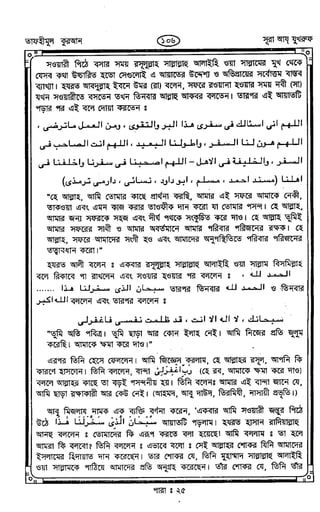 তাফহীমুল কুরআন
১০৬
সূরা আয্ যুখরুফ
সওয়ারী পিঠে বসার সময় রসূলুল্লাহ সাল্লাল্লাহু আলাইহি ওয়া সাল্লামের মুখ থেকে
যেসব কথা উচ্চারিত হতো সেগুলোই এ আয়াতের উদ্দেশ্য ও অভিপ্রায়ের সর্বোত্তম বাস্তব
ব্যাখ্যা। হযরত আবদুল্লাহ ইবনে উমর (রা) বলেন, সফরে রওয়ানা হওয়ার সময় নবী (সা)
যখন সওয়ারীতে বসতেন তখন তিনবার আল্লাহু আকবর বলতেন। তারপর এই আয়াতটি
পড়ার পর এই বলে দোয়া করতেন :
اللهم انى اسئالك فى سفرى هذا البر والتقوى، ومن العمل ماترضى،
اللهم هون لنا السفر، واطولنا البعيد، اللهم انت الصاحب فى
السفر، والخليفة فى الاهل - اللهم اصحبنا فى سفرنا واخلفنا فى
اهلنا (مسند احمد، مسلم، ابو داود، نسائى، دارمى ترمذى)
"হে আল্লাহ, আমি তোমার কাছে প্রার্থনা করছি, আমার এই সফরে আমাকে নেকী,
তাকওয়া এবং এমন কাজ করার তাওফীক দান করো যা তোমার পসন্দ। হে আল্লাহ,
আমার জন্য সফরকে সহজ এবং দীর্ঘ পথকে সংকুচিত করে দাও। হে আল্লাহ তুমিই
আমার সফরের সাথী ও আমার অবর্তমানে আমার পরিবার পরিজনের রক্ষক। হে
আল্লাহ, সফরে আমাদের সঙ্গী হও এবং আমাদের অনুপস্থিতিতে পরিবার পরিজনের
তত্ত্বাবধান করো।"
হযরত আলী বলেন : একবার রসূলুল্লাহ সাল্লাল্লাহু আলাইহি ওয়া সাল্লাম বিসমিল্লাহ
বলে রিকাবে পা রাখলেন এবং সওয়ার হওয়ার পর বললেন : الحمد لله ،
سبحان الذى سخرلنا هذا ...... তারপর তিনবার الحمد لله ও তিনবার
الله اكبر বললেন এবং তারপর বললেন :
سبحانك، لا اله الا انت، قد ظلمت نفسى فاغفرلى
"তুমি অতি পবিত্র। তুমি ছাড়া আর কোন ইলাহ নেই। আমি নিজের প্রতি জুলুম
করেছি। আমাকে ক্ষমা করে দাও।"
এরপর তিনি হেসে ফেললেন। আমি জিজ্ঞেস করলাম, হে আল্লাহর রসূল, আপনি কি
কারণে হাসলেন। তিনি বললেন, বান্দা رب اغفرلى (হে রব, আমাকে ক্ষমা করে দাও)
বললে আল্লাহর কাছে তা বড়ই পসন্দনীয় হয়। তিনি বলেন: আমার এই বান্দা জানে যে,
আমি ছাড়া ক্ষমাকারী আর কেউ নেই। (আহমদ, আবু দাউদ, তিরমিযী, নাসায়ী প্রভৃতি।)
আবু মিজলায নামক এক ব্যক্তি বর্ণনা করেন, 'একবার আমি সওয়ারী জন্তুর পিঠে
উঠে سبحان الذى سخرلنا هذا আয়াতটি পড়লাম। হযরত হাসান রাদিয়াল্লাহু
আনহু বললেন : তোমাদের কি এরূপ করতে বলা হয়েছে! আমি বললাম : তা হলে
আমরা কি বলবো? তিনি বললেন : এভাবে বলো : সেই আল্লাহর শোকর যিনি আমাদের
ইসলামের হিদায়াত দান করেছেন। তাঁর শোকর যে, তিনি মুহাম্মাদ সাল্লাল্লাহু আলাইহি
ওয়া সাল্লামকে পাঠিয়ে আমাদের প্রতি অনুগ্রহ করেছেন। তাঁর শোকর যে, তিনি তাঁর
পারা : ২৫